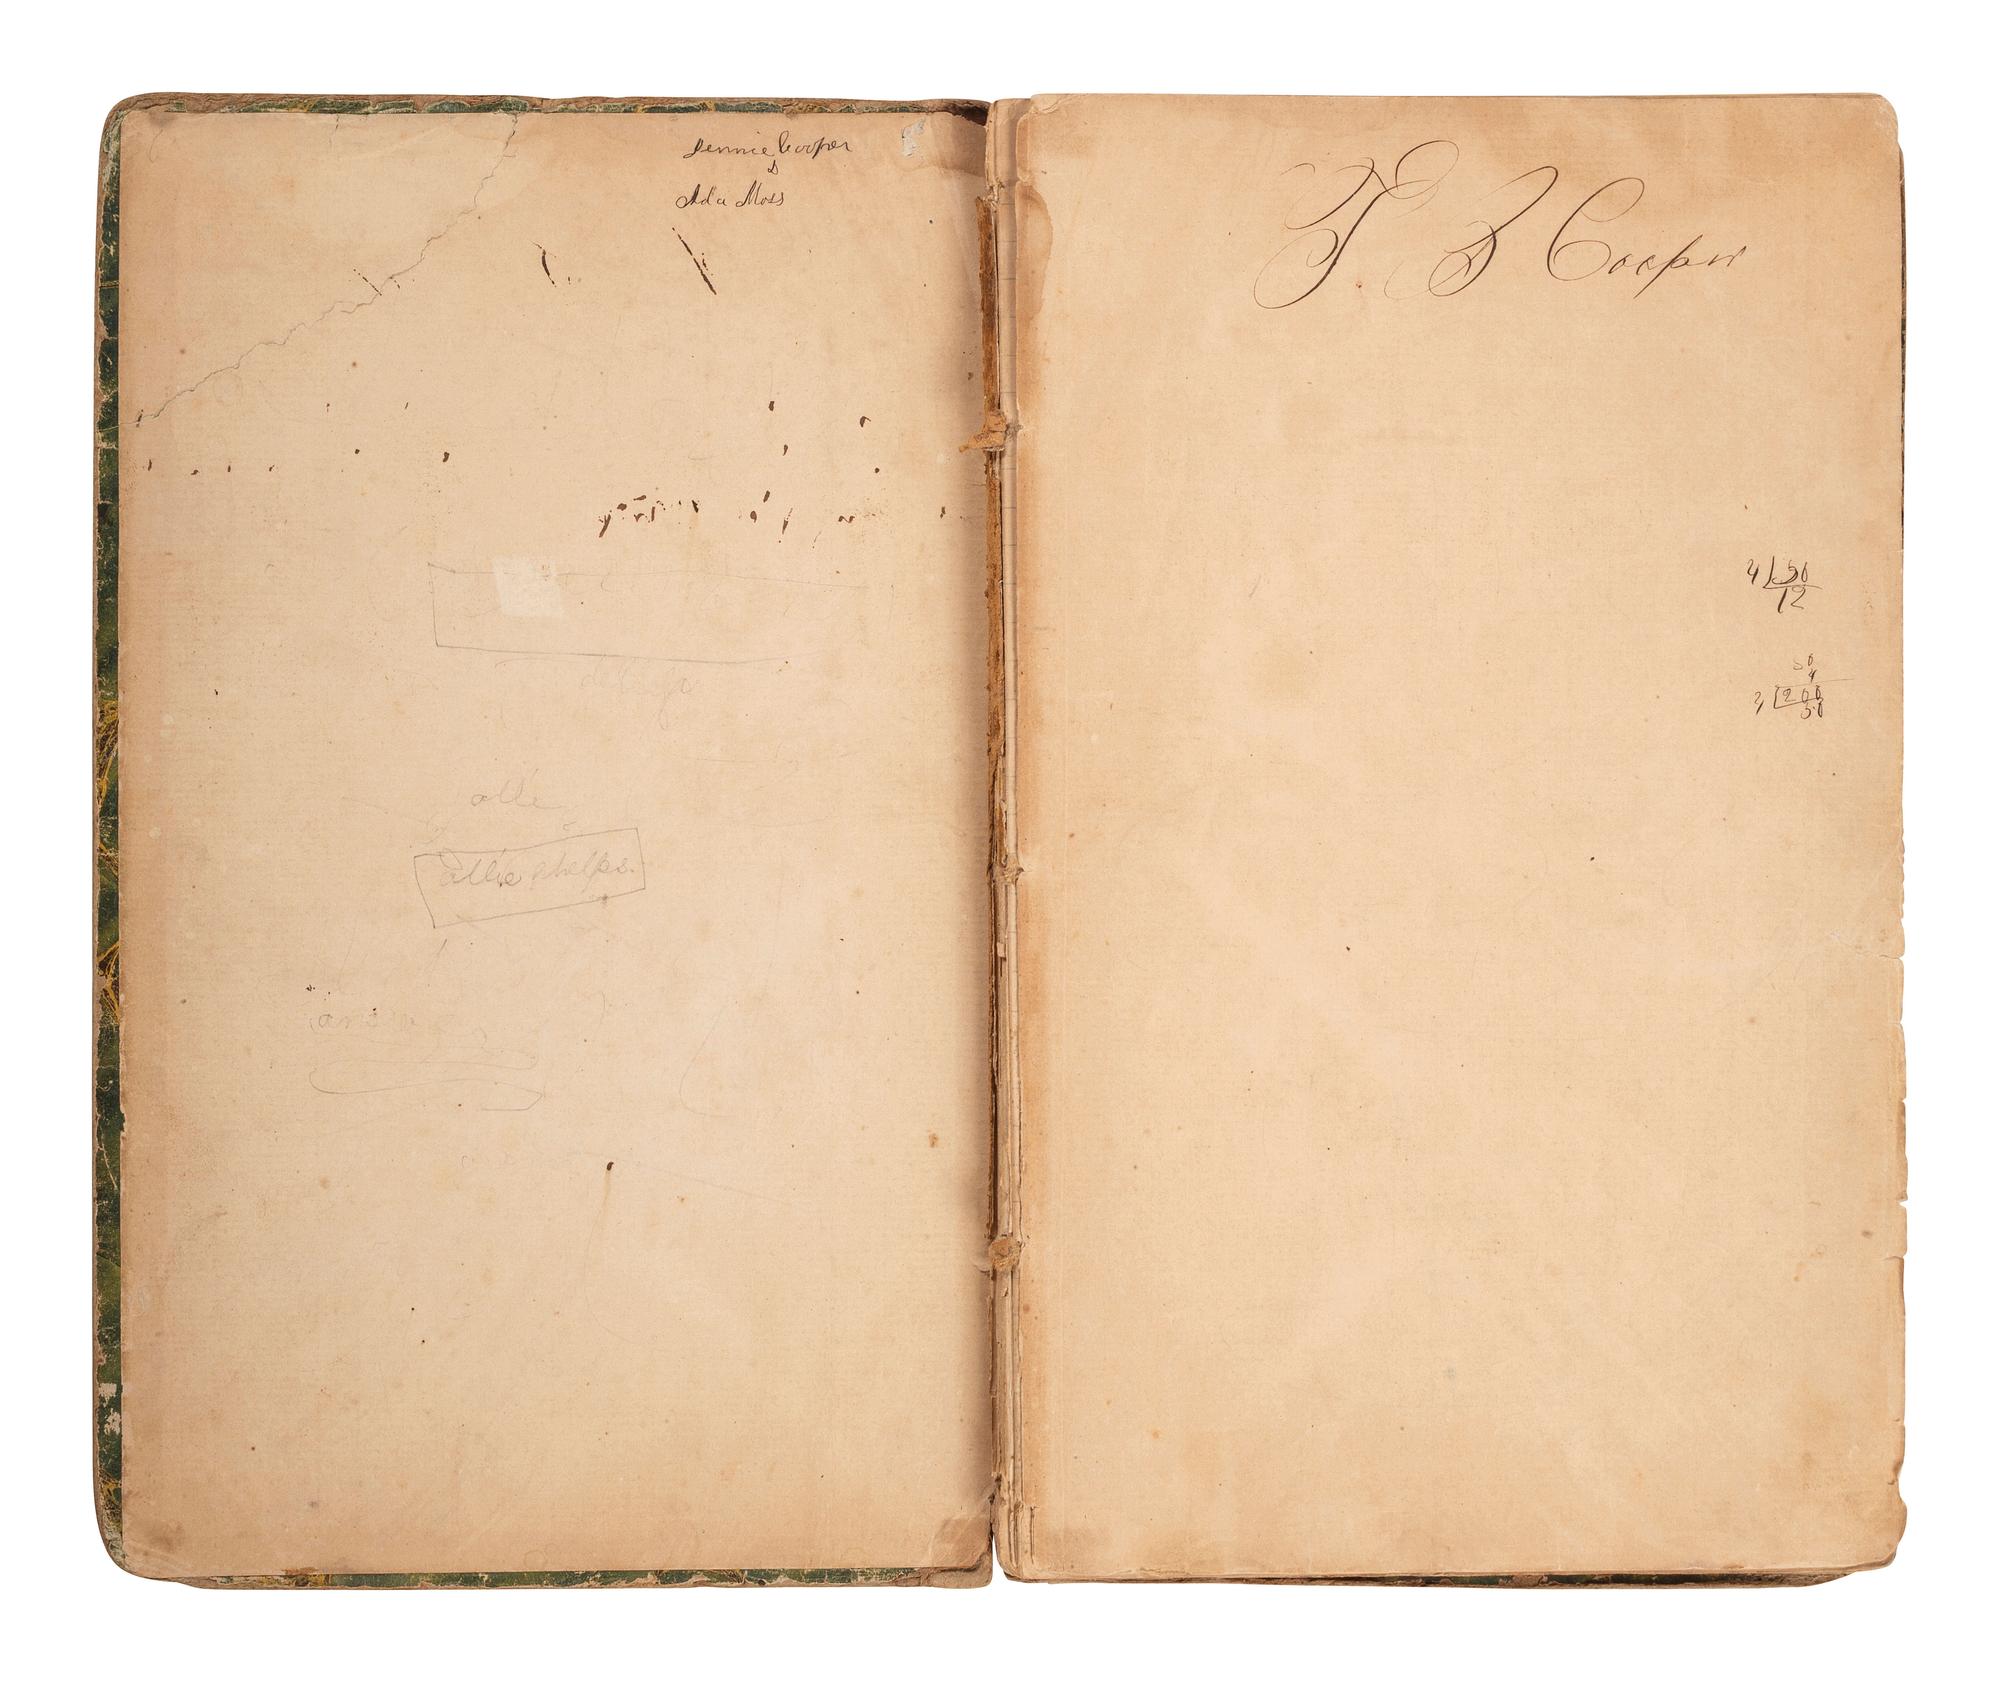 Jennie Cooper
&
Ada Moss
alle
allie phelps.
T. B Cooper
4 50
12
50
4
200
50